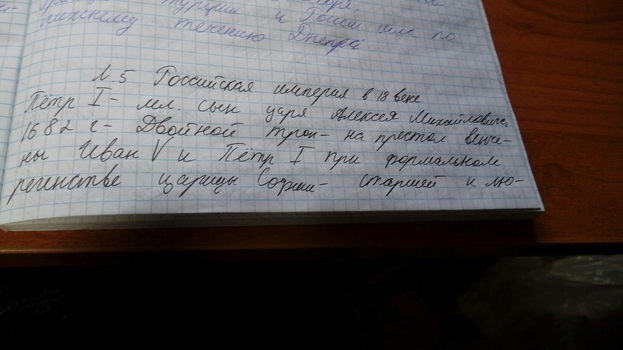 Турции и России шла по
нижнему течению Днепра
Л. 5 Российская империя в 18 веке
Пётр I - мл. сын царя Алексея Михайловича.
1682 г - Двойной трон - на престол венче-
ны Иван V и Пётр I при формальном
регенстве царицы Софьи - старшей и лю-